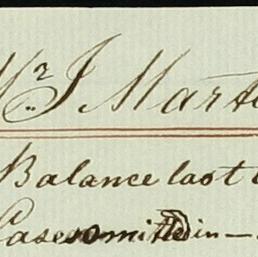 Mr J Mart
Balance last
Cases omitted in —